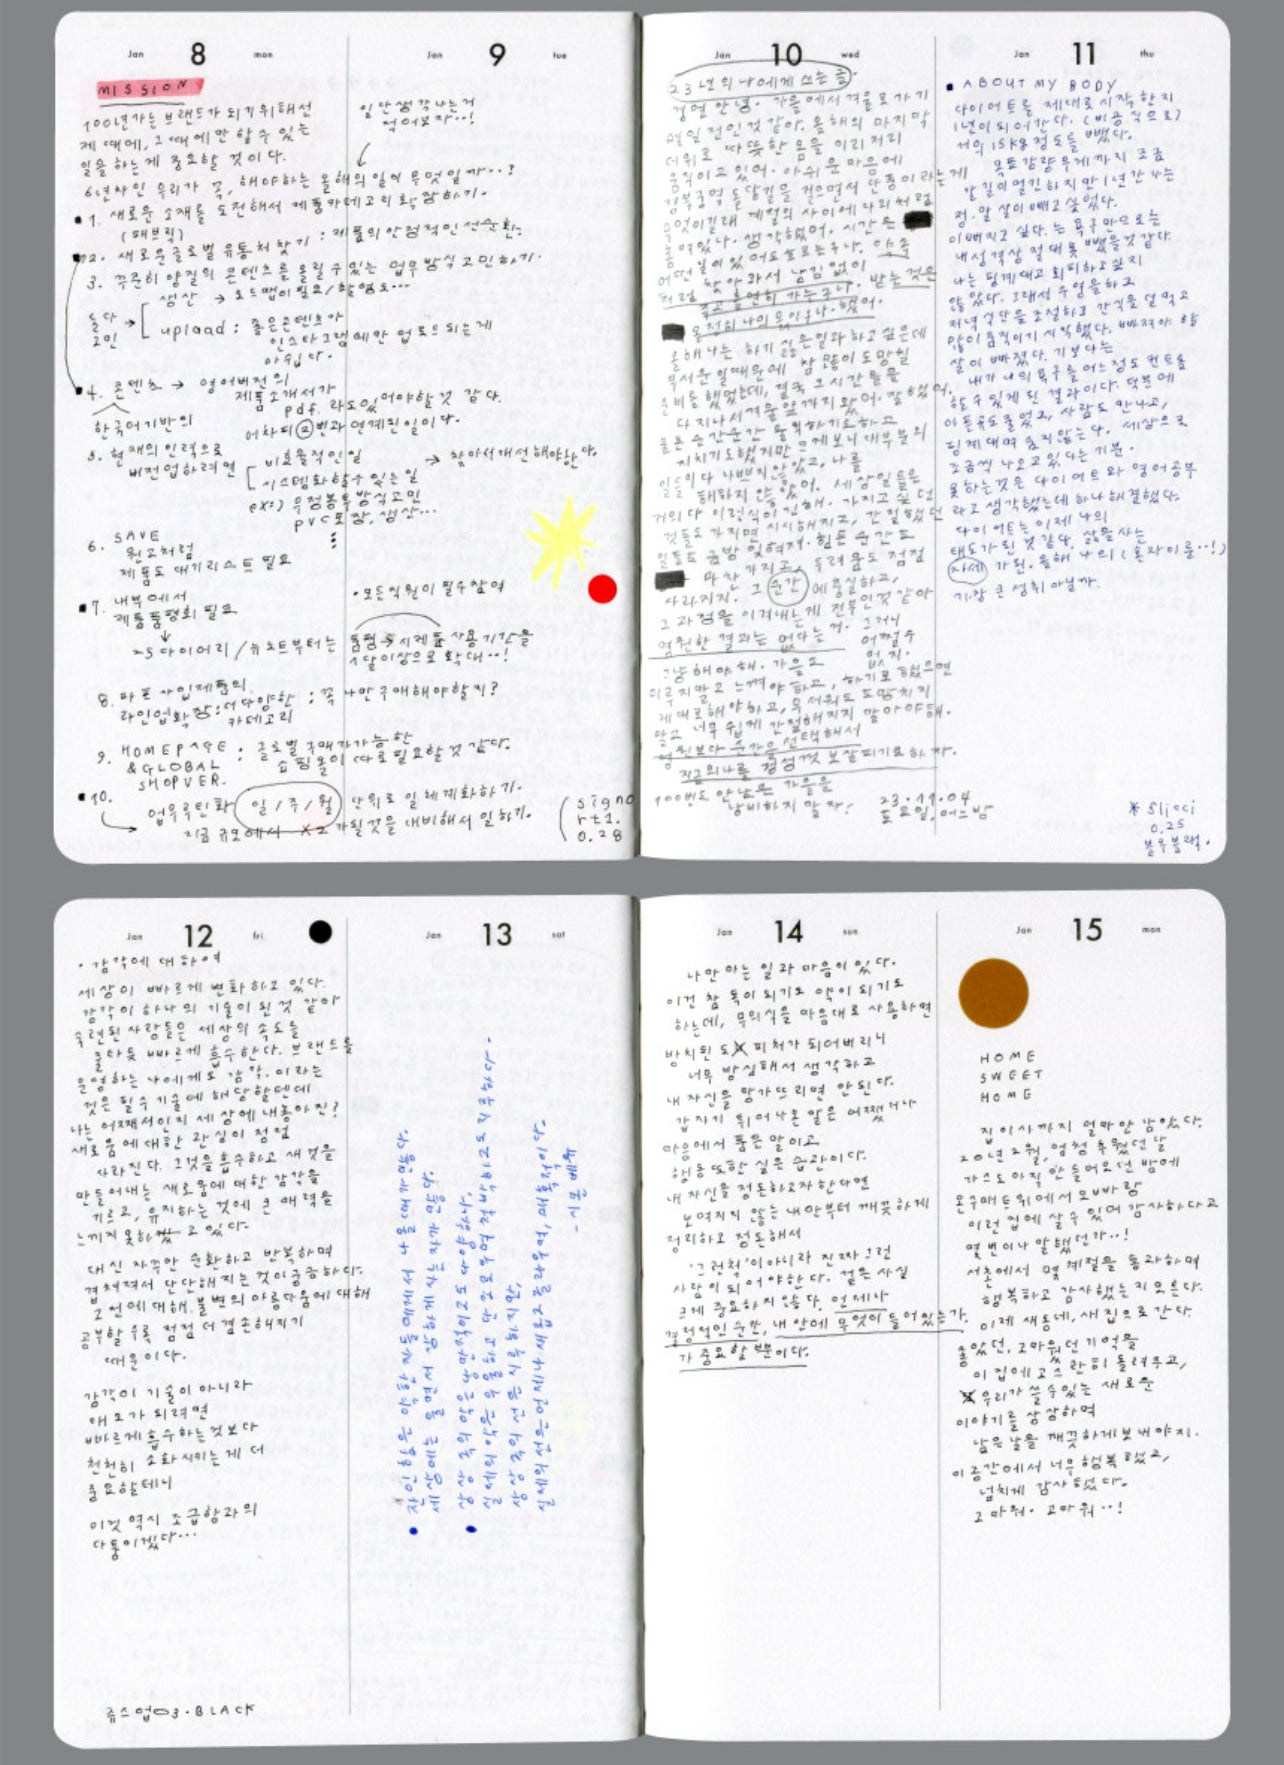 Jan 8 mon
MISSION
100년가는 브랜드가 되기위해선
제 때에, 그 때에만 할 수 있는
일을 하는게 중요할 것이다.
6년차인 우리가 꼭, 해야하는 올해의 일이 무엇일까··?
1. 새로운 소재를 도전해서 제품카테고리 확장하기.
(패브릭) : 제품의 안정적인 선순환.
2. 새로운 글로벌 유통처 찾기
3. 꾸준히 양질의 콘텐츠를 올릴 수 있는 업무방식 고민하기.
둘다 고민 → 생산 → 로드맵이 필요/촬영도...
upload : 좋은콘텐츠가
인스타그램에만 업로드되는게
아쉽다.
4. 콘텐츠 → 영어버전의
제품소개서가
pdf. 라도 있어야할 것 같다.
한국어기반의
어차피 2번과 연계된일이다.
5. 현재의 인력으로
버전업하려면
비효율적인 일
시스템화할 수 있는 일
→ 찾아서 개선해야한다.
ex:) 우정봉투방식고민
pvc포장, 생산...
6. SAVE
원고처럼
제품도 대기리스트 필요
7. 내부에서
제품품평회 필요
• 모든직원이 필수참여
25다이어리/뉴노트부터는 품평→시제품 사용기간을
1달이상으로 확대··!
8. 파트사입제품의
라인업확장: 더 다양한 : 꼭 나만구매해야할지?
카테고리
9. HOMEPAGE : 글로벌 구매자가능한
&GLOBAL 쇼핑몰이 따로필요할것 같다.
SHOP VER.
10. 업무루틴화 일/주/월 단위로 일 체계화하기.
지금 규모에서 X2 가될것을 대비해서 일하기.
Jan 9 tue
일단생각나는거
적어보자··!
signo
rt1.
0.28
Jan 10 wed
23년의 나에게 쓰는 글.
정열 안녕. 가을에서 겨울로 가기
며칠 전인것 같아. 올해의 마지막
더위로 따뜻한 몸을 이리저리
움직이고 있어. 아쉬운 마음에
경복궁역 돌담길을 걸으면서 단풍이라는게
무엇이길래 계절의 사이에 나리처럼
놓여있나. 생각했어. 시간은
어떤 일이 있어도 흐르는구나. 약속
처럼 찾아와서 남김없이 받는것은
주고 홀연히 가는구나. 했어.
온전히 나의 몫이구나. 했어.
올해 나는 하기 싫은일과 하고싶은데
무서운 일때문에 참 많이 도망칠
준비를 했었는데, 결국 그 시간들을
다 지나서 겨울앞까지 왔어. 잘했어.
물론 순간순간 불확하기도하고
지치기도했지만 크게보니 대부분의
일들이 다 나쁘지않았고, 나를
해하지 않았어. 세상일들은
거의다 이런식이긴해. 가지고 싶던
것들도 가지면 시시해지고, 간절했던
일들도 금방 잊혀져. 힘든 순간도
마찬가지고, 두려움도 점점
사라지지. 그 순간에 충실하고,
그 과정을 이겨내는게 전부인것 같아
영원한 결과는 없다는 거. 그러니
어쩔수
없지.
그냥 해야해. 가을고
미루지말고 느껴야하고, 하기로했으면
제대로해야하고, 무서워도 도망치지
말고 너무 쉽게 간절해지지 말아야해.
영원보다 순간을 선택해서
지금의나를 정성껏 보살피기로하자.
100번도 안남은 가을을
낭비하지 말자!
23.11.04
토요일, 어느밤
Jan 11 thu
ABOUT MY BODY
다이어트를 제대로시작한지
1년이되어간다. (비공식으로)
거의 15kg정도를 뺐다.
목표감량무게까지 조금
갈길이멀긴하지만 1년간 나는
정.말 살이빼고 싶었다.
이뻐지고 싶다.는 욕구만으로는
내성격상 절대 못 뺐을것같다.
나는 핑계대고 회피하고싶지
않았다. 그래서 수영을하고
저녁식단을 조절하고 간식을 덜먹고
많이움직이기 시작했다. 빠져야 할
살이 빠졌다. 기보다는
내가 나의 욕구를 어느정도 컨트롤
할수 있게 된 결과이다. 덕분에
아픈곳도 줄었고, 사람도 만나고,
핑계대며 숨지않는다. 세상으로
조금씩 나오고있다는 기분.
못하는것은 다이어트와 영어공부
라고 생각했는데 하나 해결했다.
다이어트는 이제 나의
태도가된 것 같다. 삶을사는
자세가된. 올해 나의 (혼자이룬··!)
가장 큰 성취 아닐까.
* Slicci
0.25
블루블랙.
Jan 12 fri
• 감각에 대하여
세상이 빠르게 변화하고 있다.
감각이 하나의 기술이 된것 같아
숙련된 사람들은 세상의 속도를
읽다듯 빠르게 흡수한다. 브랜드를
운영하는 나에게도 감각.이라는
것은 필수기술에 해당할텐데
나는 어째서인지 세상에 내놓아진?
새로움에 대한 관심이 점점
사라진다. 그것을흡수하고 새것을
만들어내는 새로움에 대한 감각을
기르고, 유지하는 것에 큰 매력을
느끼지 못하고 있다.
대신 자꾸만 순환하고 반복하며
겹쳐져서 단단해지는것이궁금하다.
고전에대해. 불변의아름다움에대해
공부할수록 점점 더 겸손해지기
때문이다.
감각이 기술이 아니라
태도가 되려면
빠르게흡수하는것보다
천천히 소화시키는게 더
중요할테니
이것 역시 조급함과의
다툼이겠다...
쥬스업03.BLACK
Jan 13 sat
• 잔인함은 약한 자들에게서 나올때가많다.
세상에는 울면서 상하게사는자가 많다.
• 상상 속의 악은 낭만적이고도 다양하나,
실제의 악은 우울하고 단조로우며 척박하고도 지루하다.
상상속의 선은 지루하지만,
실제의 선은 언제나 새롭고 놀라우며, 매혹적이다.
- 시몬 베유
Jan 14 sun
나만 아는 일과 마음이 있다.
이건 참 독이 되기도 약이 되기도
하는데, 무의식을 마음대로 사용하면
방치된 도피처가 되어버리니
너무 방심해서 생각하고
내 자신을 망가뜨리면 안된다.
갑자기 튀어나온 말은 어쨌거나
마음에서 품은 말이고
행동 또한 실은 습관이다.
내 자신을 정돈하고자한다면
보여지지 않는 내 안부터 깨끗하게
정리하고 정돈해서
'그런척'이아니라 진짜 그런
사람이 되어야한다. 겉은 사실
크게 중요하지 않다. 언제나
결정적인순간, 내 안에 무엇이 들어있는가.
가 중요할 뿐이다.
Jan 15 mon
HOME
SWEET
HOME
집 이사까지 얼마안남았다.
20년 2월, 엄청 추웠던 날
가스도 아직 안들어오던 밤에
온수매트위에서 오빠랑
이런 집에 살수 있어 감사하다고
몇번이나 말했던가··!
서촌에서 몇 계절을 통과하며
행복하고 감사했는지모른다.
이제 새동네, 새집으로 간다.
좋았던, 고마웠던기억을
이 집에 고스란히 돌려주고,
우리가 쓸수있는 새로운
이야기를 상상하며
남은날을 깨끗하게보내야지.
이공간에서 너무행복했고,
넘치게 감사했다.
고마워. 고마워··!